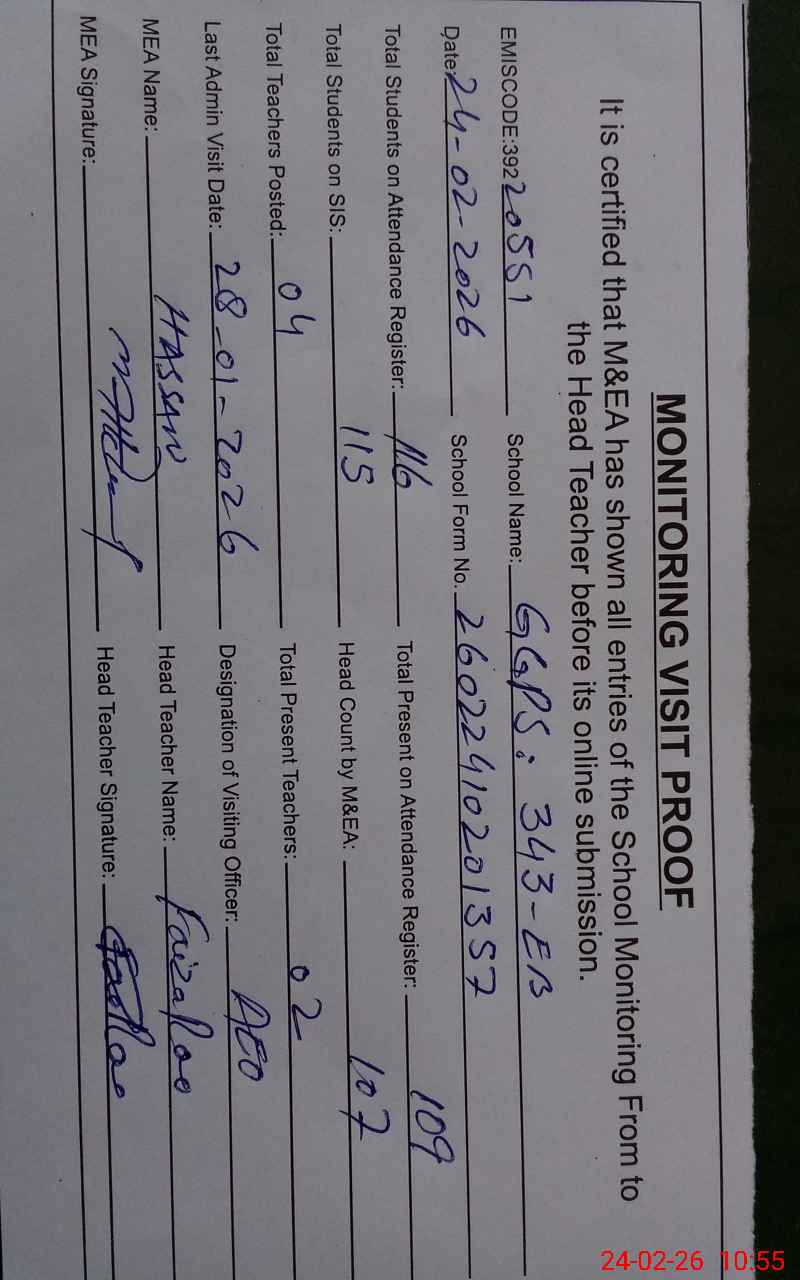 MONITORING VISIT PROOF
It is certified that M&EA has shown all entries of the School Monitoring From to
the Head Teacher before its online submission.
EMISCODE:392 20551 School Name: GGPS: 343-EB
Date: 24-02-2026 School Form No. 26022410201357
Total Students on Attendance Register: 116 Total Present on Attendance Register: 109
Total Students on SIS: 115 Head Count by M&EA: 107
Total Teachers Posted: 04 Total Present Teachers: 02
Last Admin Visit Date: 28-01-2026 Designation of Visiting Officer: AEO
MEA Name: HASSAN Head Teacher Name: Faiza Rao
MEA Signature: Head Teacher Signature:
24-02-26 10:55